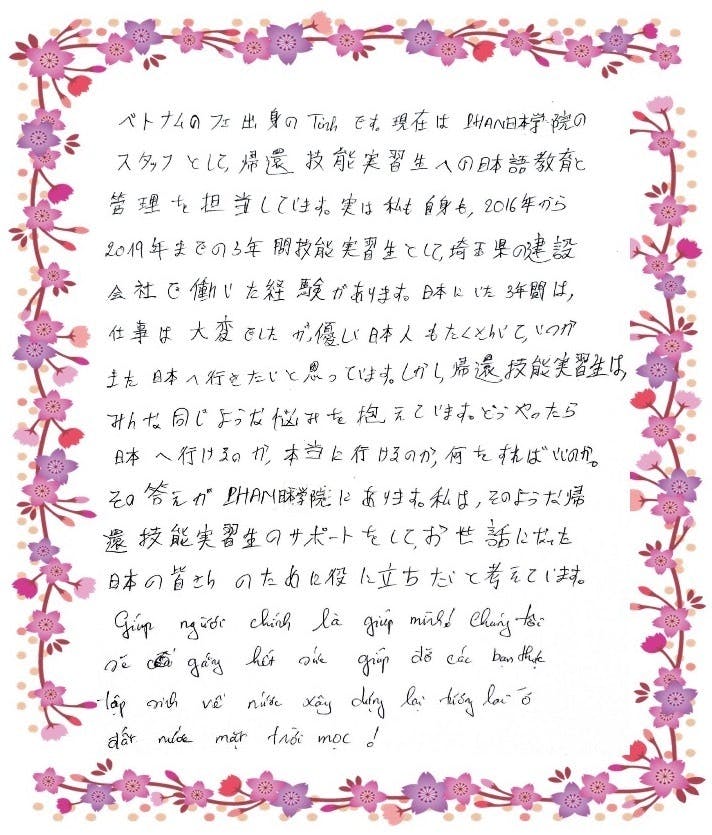 ベトナムのフエ出身のTinhです。現在はPHAN日本学院の
スタッフとして、帰還技能実習生への日本語教育と
管理を担当しています。実は私も自身も、2016年から
2019年までの3年間技能実習生として、埼玉県の建設
会社で働いた経験があります。日本にいた3年間は、
仕事は大変でしたが、優しい日本人もたくさんいて、いつか
また日本へ行きたいと思っています。しかし、帰還技能実習生は、
みんな同じような悩みを抱えています。どうやったら
日本へ行けるのか、本当に行けるのか、何をすればいいのか。
その答えがPHAN日本学院にあります。私は、そのような帰
還技能実習生のサポートをして、お世話になった
日本の皆さんのために役に立ちたいと考えています。
Giúp người chính là giúp mình! Chúng tôi
sẽ cố gắng hết sức giúp đỡ các bạn thực
tập sinh về nước xây dựng lại tương lai ở
đất nước mặt trời mọc!